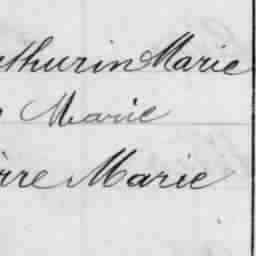 athurin Marie
Marie
irre Marie